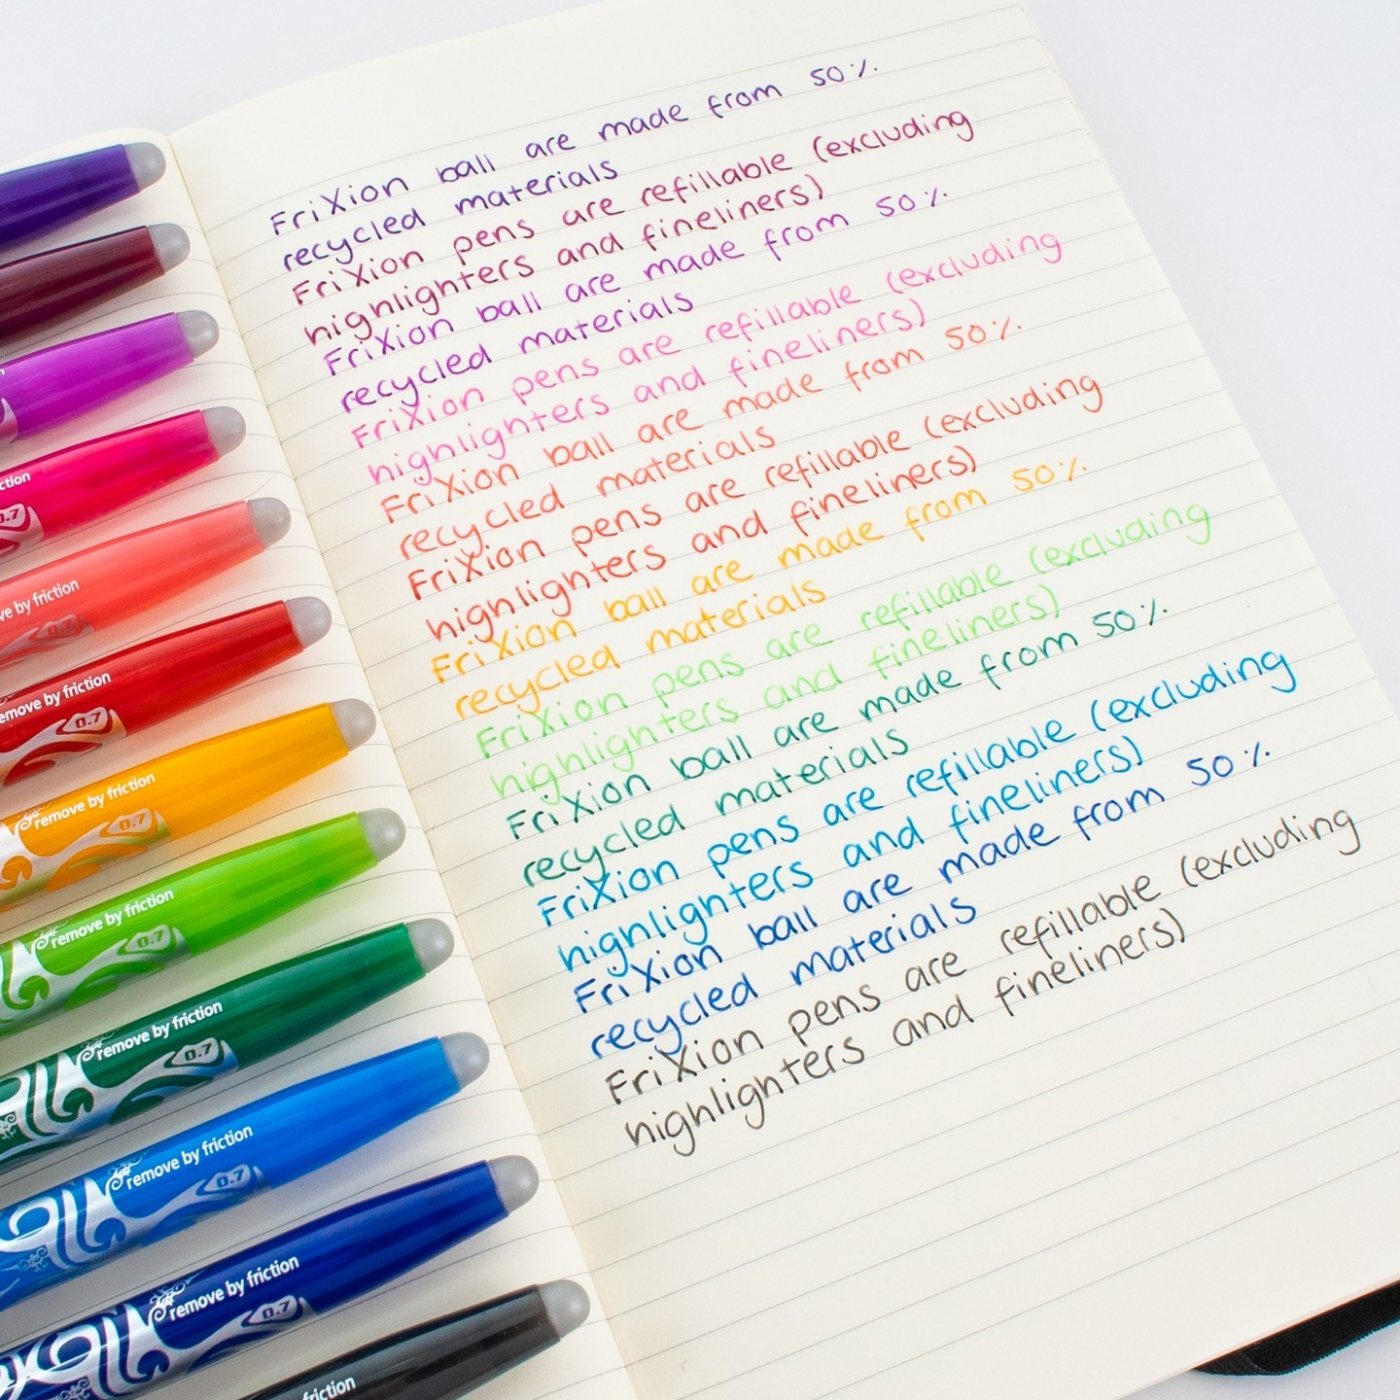 FriXion ball are made from 50%
recycled materials
FriXion pens are refillable (excluding
highlighters and fineliners)
FriXion ball are made from 50%
recycled materials
FriXion pens are refillable (excluding
highlighters and fineliners)
FriXion ball are made from 50%
recycled materials
FriXion pens are refillable (excluding
highlighters and fineliners)
FriXion ball are made from 50%
recycled materials
FriXion pens are refillable (excluding
highlighters and fineliners)
FriXion ball are made from 50%
recycled materials
FriXion pens are refillable (excluding
highlighters and fineliners)
FriXion ball are made from 50%
recycled materials
FriXion pens are refillable (excluding
highlighters and fineliners)
ction
0.7
ve by friction
0.7
emove by friction
0.7
remove by friction
0.7
remove by friction
0.7
remove by friction
0.7
remove by friction
0.7
remove by friction
0.7
friction